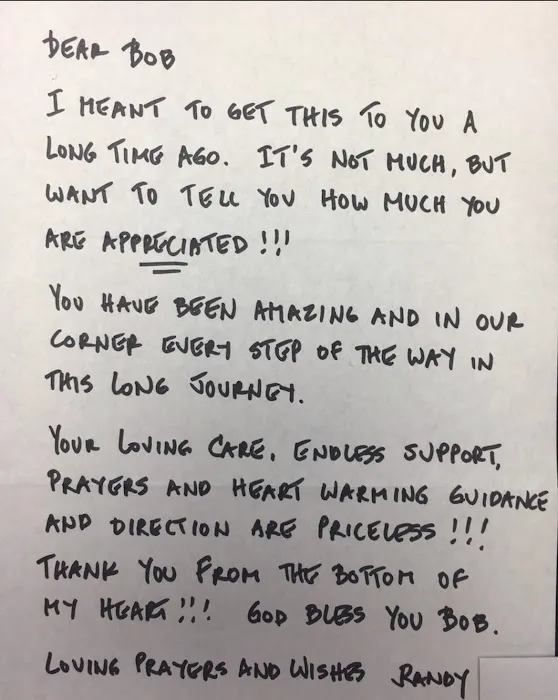 DEAR BOB
I MEANT TO GET THIS TO YOU A
LONG TIME AGO. IT'S NOT MUCH, BUT
WANT TO TELL YOU HOW MUCH YOU
ARE APPRECIATED!!!
YOU HAVE BEEN AMAZING AND IN OUR
CORNER EVERY STEP OF THE WAY IN
THIS LONG JOURNEY.
YOUR LOVING CARE, ENDLESS SUPPORT,
PRAYERS AND HEART WARMING GUIDANCE
AND DIRECTION ARE PRICELESS!!!
THANK YOU FROM THE BOTTOM OF
MY HEART!!! GOD BLESS YOU BOB.
LOVING PRAYERS AND WISHES RANDY